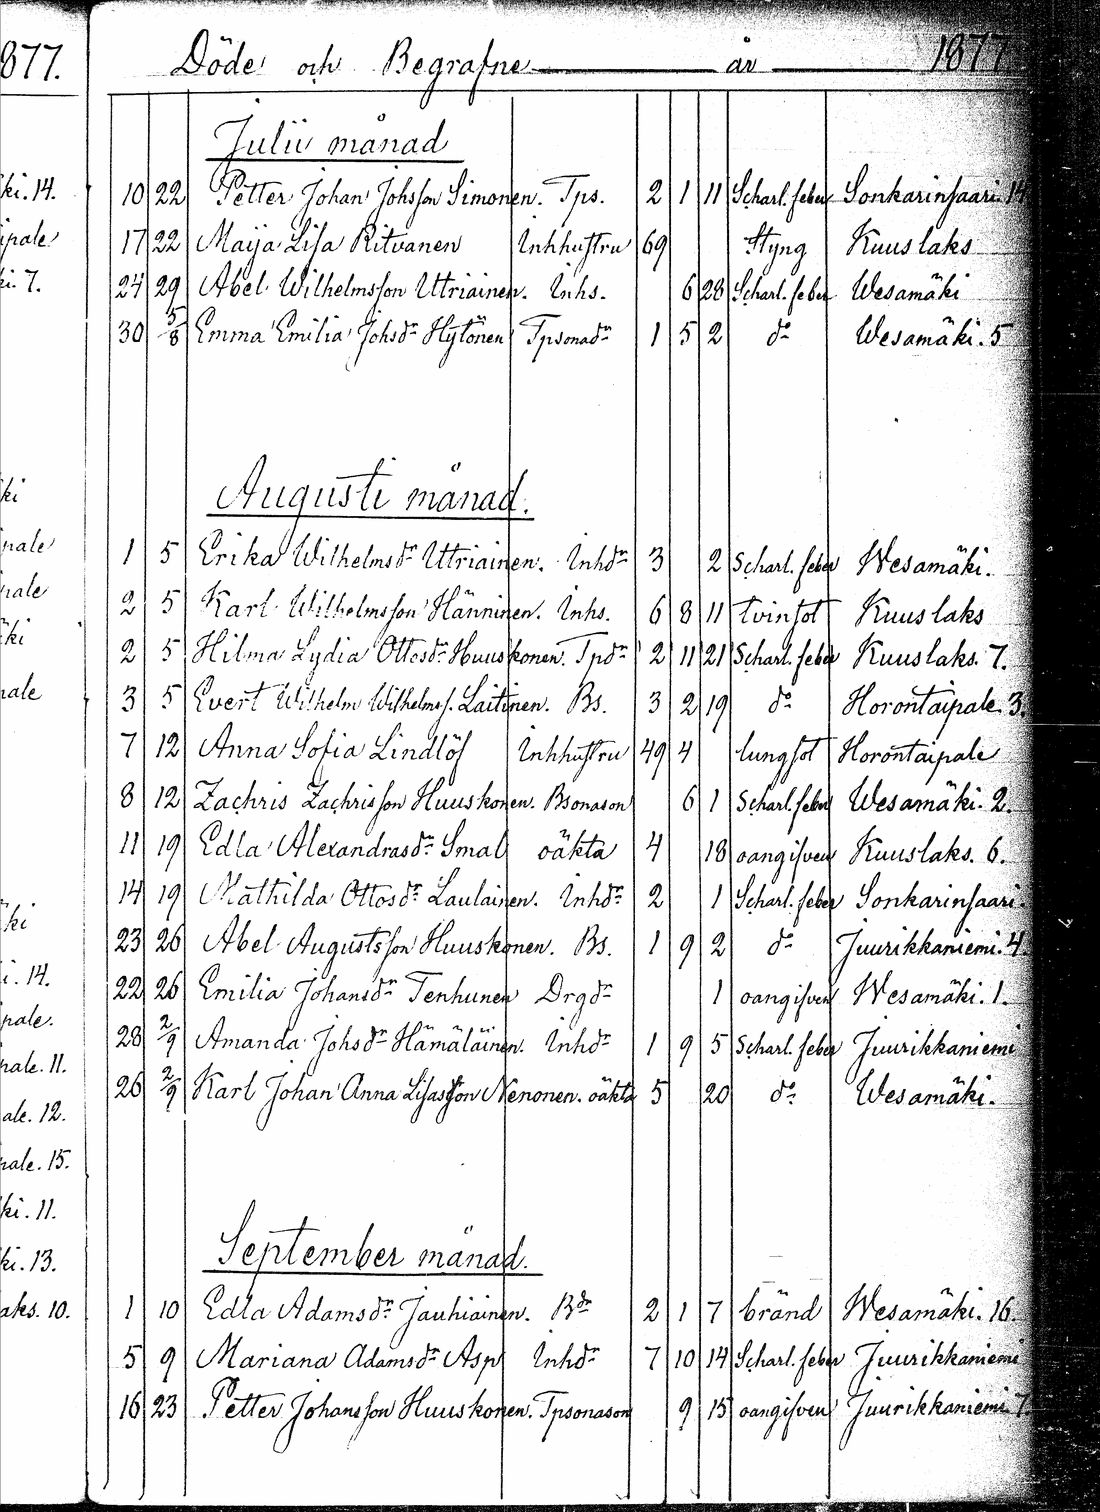 877.
ki. 14.
ipale
ki. 7.
ki
pale
pale
äki
pale
äki
i. 14.
pale.
pale. 11.
ale. 12.
pale. 15.
ki. 11.
ki. 13.
aks. 10.
Döde och Begrafne år 1877
Julii månad
10 22 Petter Johan Johsson Simonen. Tps. 2 1 11 Scharl. feber Sonkarinsaari. 14
17 22 Maija Lisa Ritvanen Inhhustru 69 Styng Kuuslaks
24 29 Abel Wilhelmsson Utriainen. Inhs. 6 28 Scharl. feber Wesamäki
30 5/8 Emma Emilia Johsdr Hytönen Tpsonadr 1 5 2 do Wesamäki. 5
Augusti månad.
1 5 Erika Wilhelmsdr Utriainen. Inhdr 3 2 Scharl. feber Wesamäki.
2 5 Karl Wilhelmsson Hänninen. Inhs. 6 8 11 tvinsot Kuuslaks
2 5 Hilma Lydia Ottosdr Huuskonen. Tpdr 2 11 21 Scharl. feber Kuuslaks. 7.
3 5 Evert Wilhelm Wilhelmss. Laitinen. Bs. 3 2 19 do Horontaipale. 3.
7 12 Anna Sofia Lindlöf Inhhustru 49 4 lungsot Horontaipale
8 12 Zachris Zachrisson Huuskonen. Bsonason 6 1 Scharl. feber Wesamäki. 2.
11 19 Edla Alexandrasdr Smal oäkta 4 18 oangifven Kuuslaks. 6.
14 19 Mathilda Ottosdr Laulainen. Inhdr 2 1 Scharl. feber Sonkarinsaari.
23 26 Abel Augustsson Huuskonen. Bs. 1 9 2 do Juurikkaniemi. 4.
22 26 Emilia Johansdr Tenhunen Drgdr 1 oangifven Wesamäki. 1.
28 2/9 Amanda Johsdr Hämäläinen. Inhdr 1 9 5 Scharl. feber Juurikkaniemi
26 2/9 Karl Johan Anna Lisasson Nenonen. oäkta 5 20 do Wesamäki.
September månad.
1 10 Edla Adamsdr Jauhiainen. Bdr 2 1 7 bränd Wesamäki. 16.
5 9 Mariana Adamsdr Asp Inhdr 7 10 14 Scharl. feber Juurikkaniemi
16 23 Petter Johansson Huuskonen. Tpsonason 9 15 oangifven Juurikkaniemi. 7.